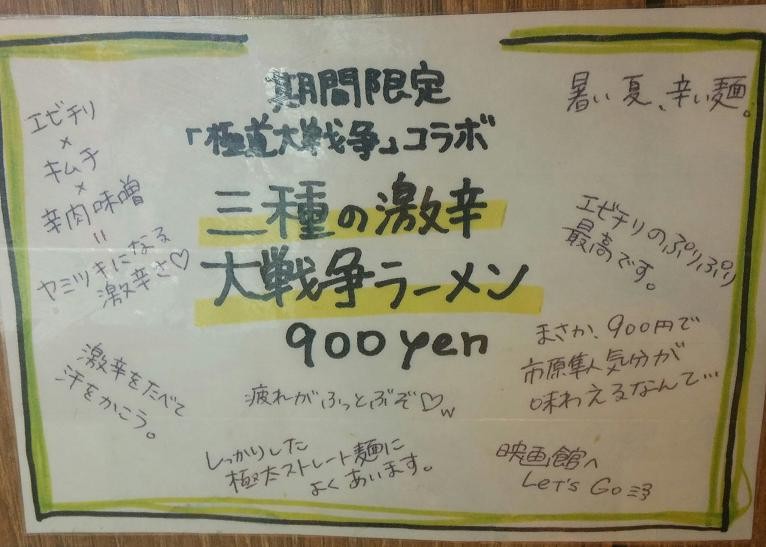 期間限定
「極道大戦争」コラボ
三種の激辛
大戦争ラーメン
900yen
エビチリ
×
キムチ
×
辛肉味噌
=
ヤミツキになる
激辛さ♡
暑い夏、辛い麺。
エビチリのぷりぷり
最高です。
まさか、900円で
市原隼人気分が
味わえるなんて…
激辛をたべて
汗をかこう。
疲れがふっとぶぞ♡w
しっかりした
極太ストレート麺に
よくあいます。
映画館へ
Let's Go